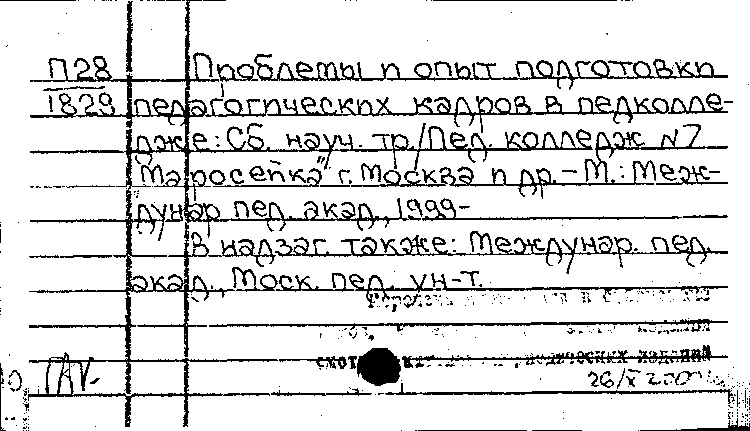 П28 Проблемы и опыт подготовки
1829 педагогических кадров в педколле-
дже: Сб. науч. тр./Пед. колледж N7
"Маросейка" г. Москва и др. - М.: Меж-
дунар пед. акад., 1999-
В надзаг. также: Междунар. пед.
акад., Моск. пед. ун-т.
изданий
26/X